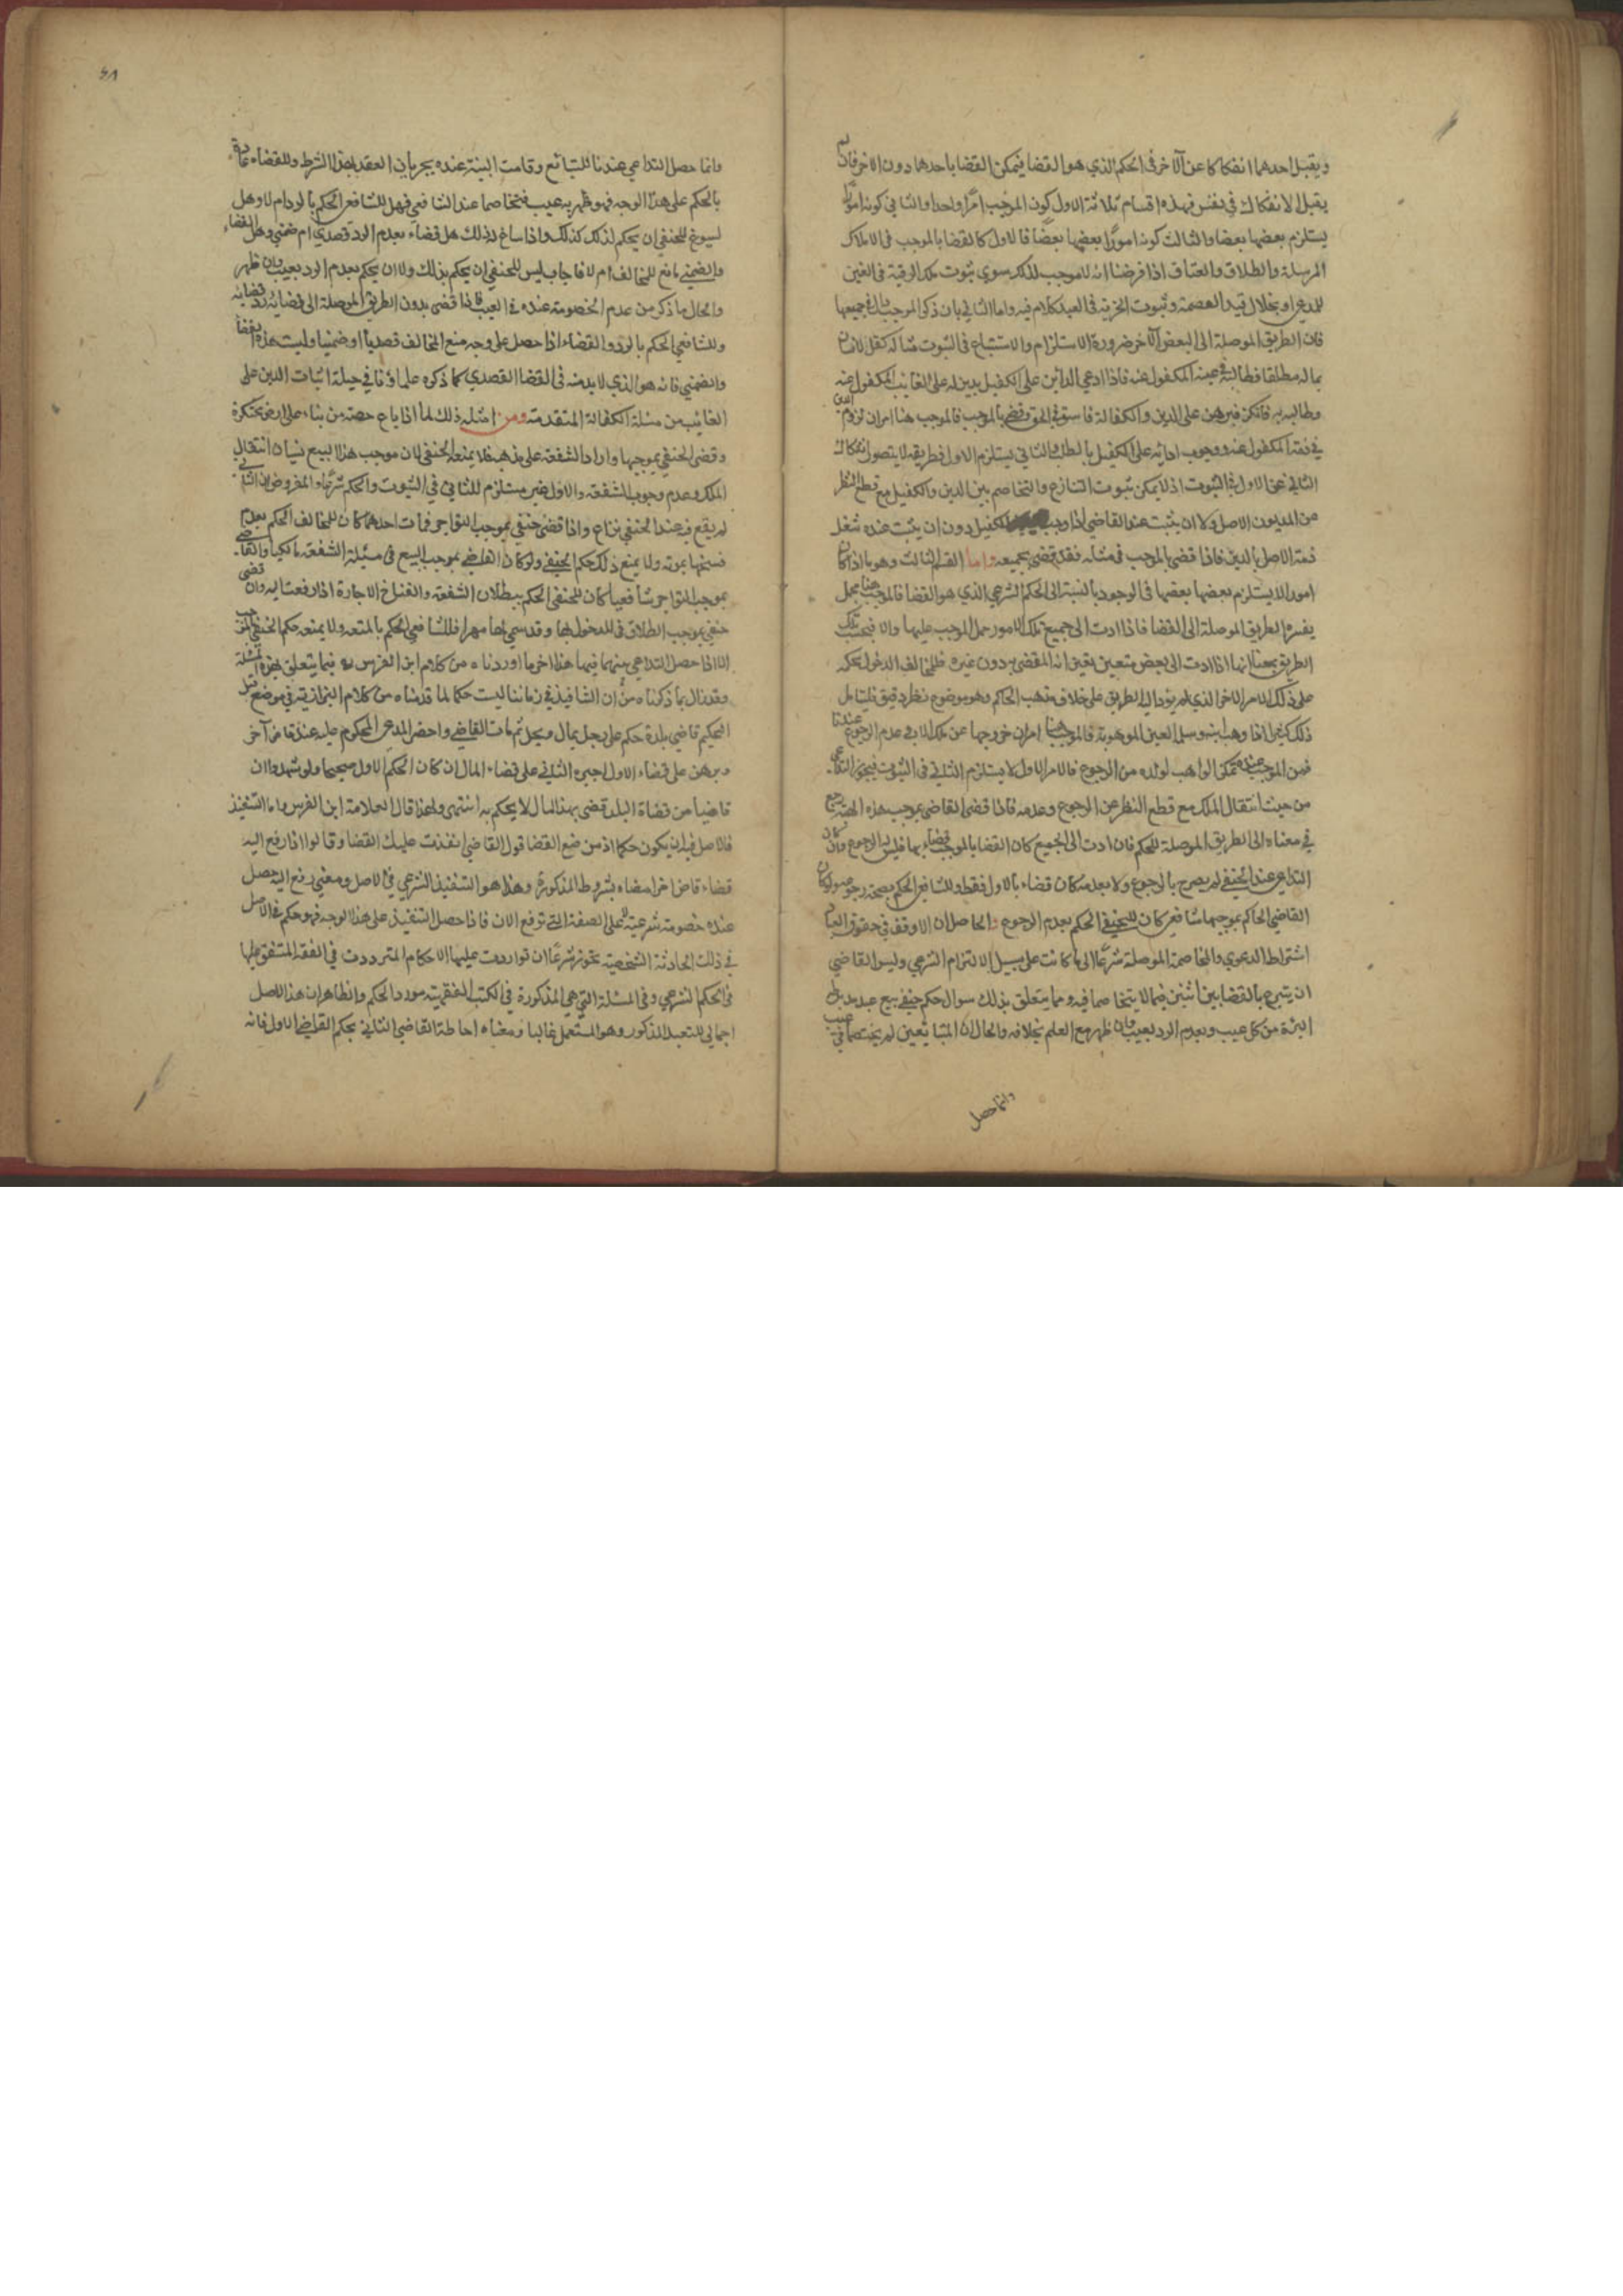 ويقبل احدهما انفكاكا عن الآخر في الحكم الذي هو القضا فيمكن القضا باحدهما دون الاخر فان لم
يقبل الانفكاك في نفس فهذه اقسام ثلاثة الاول كون الموجب امرا واحدا والثاني كونه امورا
يستلزم بعضها بعضا والثالث كونه امورا بعضها بعضا فالاول كالقضا بالموجب في الاملاك
المرسلة والطلاق والعتاق اذا فرضنا انه لا موجب لذلك سوى ثبوت ملك الرقبة في العين
للمدعي او بخلال قيد العصمة وثبوت الحرية في العبد كلام فيه واما الثاني بان ذكر الموجب بال في جميعها
فان الطريق الموصلة الى البعض الآخر ضرورة الاستلزام والاستتباع في الثبوت مثاله كفل لانسان
بماله مطلقا فطالبته عينه المكفول عنه فاذا ادعى الدائن على الكفيل بدين له على الغائب المكفول عنه
وطالبه به فانكر فبرهن على الدين والكفالة فاستوفى الحق وقضى بالموجب فالموجب هنا امران لزوم الدين
في ذمة المكفول عنه ووجوب ادائه على الكفيل بالطلب والثاني يستلزم الاول فطريقه لا يتصور انفكاك
الثاني عن الاول في الثبوت اذ لا يمكن ثبوت التنازع والتخاصم بين الدين والكفيل مع قطع النظر
من المديون الاصل ولا ان يثبت عند القاضي اذا وجب الكفيل دون ان يثبت عنده شغل
ذمة الاصل بالدين فاذا قضى بالموجب في مثله فقد قضى بجميعه واما القسم الثالث وهو ما اذا كان
امورا لا يستلزم بعضها بعضها في الوجود بالنسبة الى الحكم الشرعي الذي هو القضا فالموجب هنا مجمل
يفسره الطريق الموصلة الى القضا فاذا ادت الى جميع تلك الامور حمل الموجب عليها والا فبحسب تلك
الطريق بمعنى انها اذا ادت الى بعض متعين يقين انه المقضي به دون غيره فللمخالف الدخول بحكمه
على ذلك الامر الاخر الذي لم يؤد اليه الطريق على خلاف مذهب الحاكم وهو موضوع نظر دقيق فليتامل
ذلك كثيرا اذا وهب ابنه وسلم العين الموهوبة فالموجب هنا امران خروجها عن ملك الاب في عدم الرجوع عندنا
فمن الموجب عنده تمكن الواهب لولده من الرجوع فالامر الاول لا يستلزم الثاني في الثبوت فيجوز التداعي
من حيث انتقال الملك مع قطع النظر عن الرجوع وعدمه فاذا قضى القاضي بموجب هذه الهبة رجع
في معناه الى الطريق الموصلة للحكم فان ادت الى الجميع كان القضا بالموجب قضاء بها فليس له الرجوع وان كان
التداعي عند الحنفي لم يصرح بالرجوع ولا بعدمه كان قضاء بالاول فقط وللشافعي الحكم بصحة رجوعه ولو كان
القاضي الحاكم بموجبها شافعي كان للحنفي الحكم بعدم الرجوع والحاصل ان الاوقف في حقوق العباد
اشتراط الدعوى والمخاصمة الموصلة شرعا الى ما كانت على سبيل الالتزام الشرعي وليس القاضي
ان يتبرع بالقضا بين اثنين فيما لا يتخاصما فيه ومما يتعلق بذلك سوال حكم حنفي ببيع عبد بشرط
البراءة من كل عيب وبعدم الرد بعيب وان ظهر مع العلم بخلافه والحال ان المتبايعين لم يختصما في عيب
وانما حصل
٤٨
وانما حصل التداعي عندنا للتبايع وقامت البينة عنده بجريان العقد بهذا الشرط وللقضاء
بالحكم على هذا الوجه فهو ظهر به عيب فتخاصما عند الشافعي فهل للشافعي الحكم بالرد ام لا وهل
يسوغ للحنفي ان يحكم لذلك كذلك واذا ساغ له ذلك هل قضاء بعدم الرد قصدي ام ضمني وهل القضاء
والضمني مانع للمخالف ام لا فاجاب ليس للحنفي ان يحكم بذلك ولا ان يحكم بعدم الرد بعيب وان ظهر
والحال ما ذكر من عدم الخصومة عنده في العيب فاذا قضى بدون الطريق الموصلة الى قضايه رد قضاؤه
وللشافعي الحكم بالرد والقضاء اذا حصل على وجه منع المخالف قصديا او ضمنيا وليست هذه القضا
والضمني فانه هو الذي لابد منه في القضا القصدي كما ذكره علماؤنا في حيلة اثبات الدين على
الغائب من مسئلة الكفالة المتقدمة ومن امثلة ذلك لما اذا باع حصته من بناء على ارض محتكرة
وقضى الحنفي بموجبها واراد الشفعة على مذهبه فلا يمنعه الحنفي لان موجب هذا البيع شيان انتقال
الملك وعدم وجوب الشفعة والاول غير مستلزم للثاني في الثبوت والحكم شرعا والمفروض ان الثاني
لم يقع فيه عند الحنفي نزاع واذا قضى حنفي بموجب التواجر فمات احدهما كان للمخالف الحكم بعدم
فسخها بموته ولا يمنع ذلك حكم الحنفي ولو كان القاضي بموجب البيع في مسئلة الشفعة مالكيا والقاضي
بموجب التواجر شافعيا كان للحنفي الحكم ببطلان الشفعة وانفساخ الاجارة اذا رفعتا اليه وان قضى
حنفي بموجب الطلاق في المدخول بها وقد سمى لها مهرا فللشافعي الحكم بالمتعة ولا يمنعه حكم الحنفي بالموجب
الا اذا حصل التداعي منهما فيها هذا اخر ما اوردناه من كلام ابن الغرس فيما يتعلق بهذه المسئلة
وقد نال بما ذكرناه من ان التنافيذ في زماننا ليست حكما لما قدمناه من كلام البزازية في موضع قبل
التحكيم قاضي بلدة حكم على رجل بمال وسجل ثم مات القاضي واحضر المدعي المحكوم عليه عند قاض آخر
وبرهن على قضاء الاول اجبره الثاني على قضاء المال ان كان الحكم الاول صحيحا ولو شهدوا ان
قاضيا من قضاة البلد قضى بهذا المال لا يحكم به انتهى ولهذا قال العلامة ابن الغرس واما التنفيذ
فالاصل فيه ان يكون حكما اذ من صيغ القضا قول القاضي انفذت عليك القضا وقالوا اذا رفع اليه
قضاء قاض اخر امضاه بشروط المذكورة وهذا هو التنفيذ الشرعي في الاصل ومعنى رفع اليه حصل
عنده خصومة شرعية على الصفة التي ترفع الان فاذا حصل التنفيذ على هذا الوجه فهو حكم في الاصل
في ذلك الحادثة الشخصية تجوز شرعا ان تواردت عليها الاحكام المترددت في الفقه المتفق عليها
في الحكم الشرعي وفي المسئلة التي هي المذكورة في الكتب الفقهية مورد الحكم والظاهر ان هذا الاصل
اجمالي للتعبد المذكور وهو المستعمل غالبا ومعناه احاطة القاضي الثاني بحكم القاضي الاول فانه